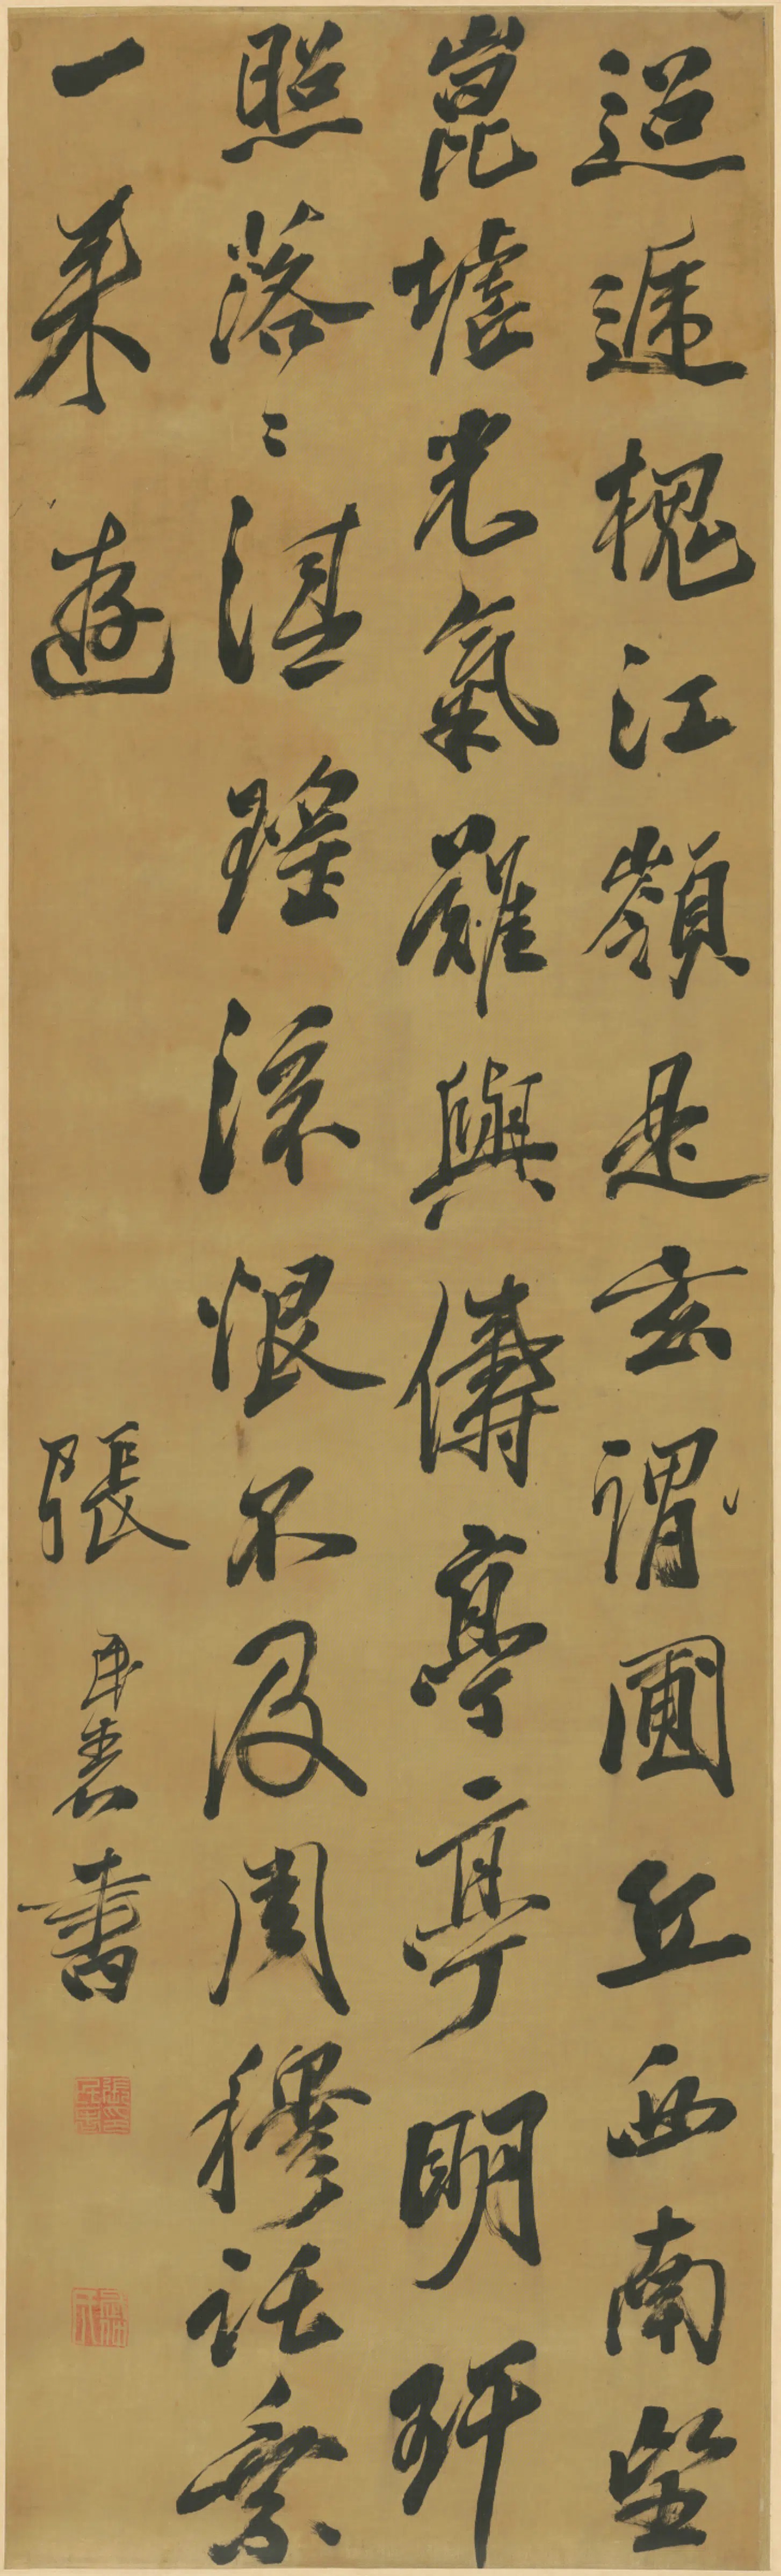 迢遞槐江嶺是玄謂圃丘西南望
崑墟光氣難與儔亭亭明玕
照落〻湛瑤流恨不及周穆託乘
一来遊 張民表書